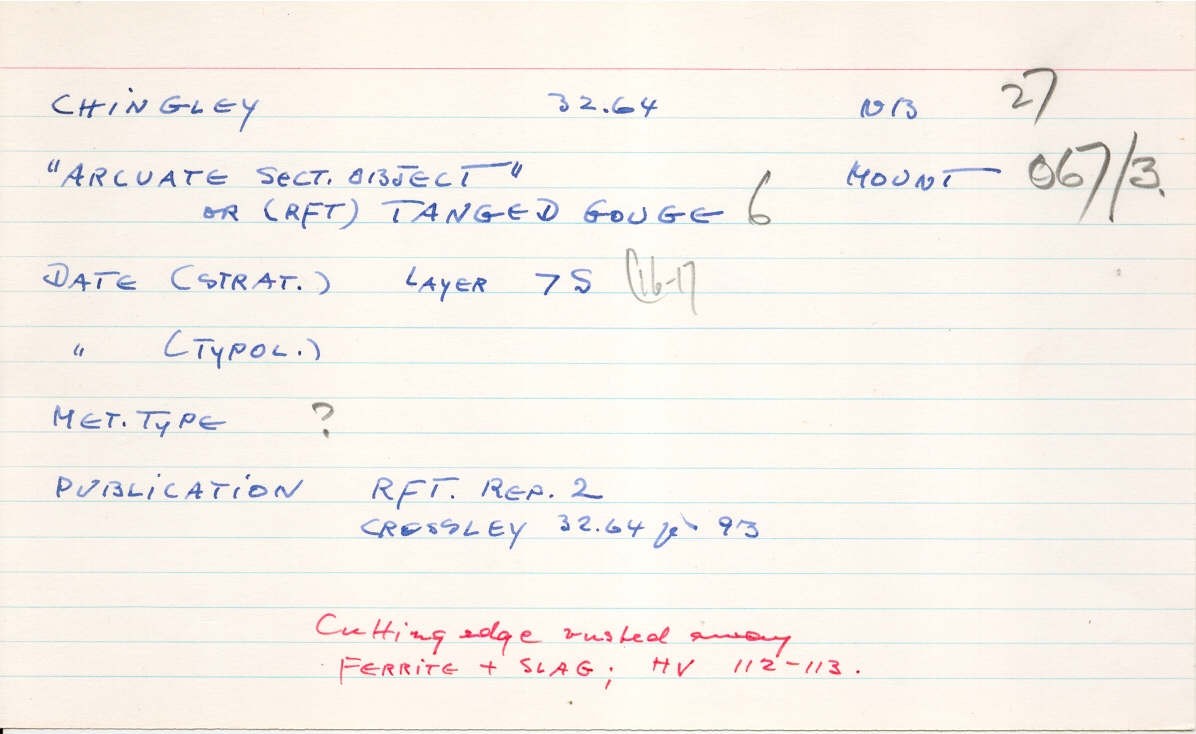 CHINGLEY 32.64 NB 27
"ARCUATE SECT. OBJECT" MOUNT 067/3.
OR (RFT) TANGED GOUGE 6
DATE (STRAT.) LAYER 7S (16-17
" (TYPOL.)
MET. TYPE ?
PUBLICATION RFT. REP. 2
CROSSLEY 32.64 p. 93
Cutting edge rusted away
FERRITE + SLAG; HV 112-113.